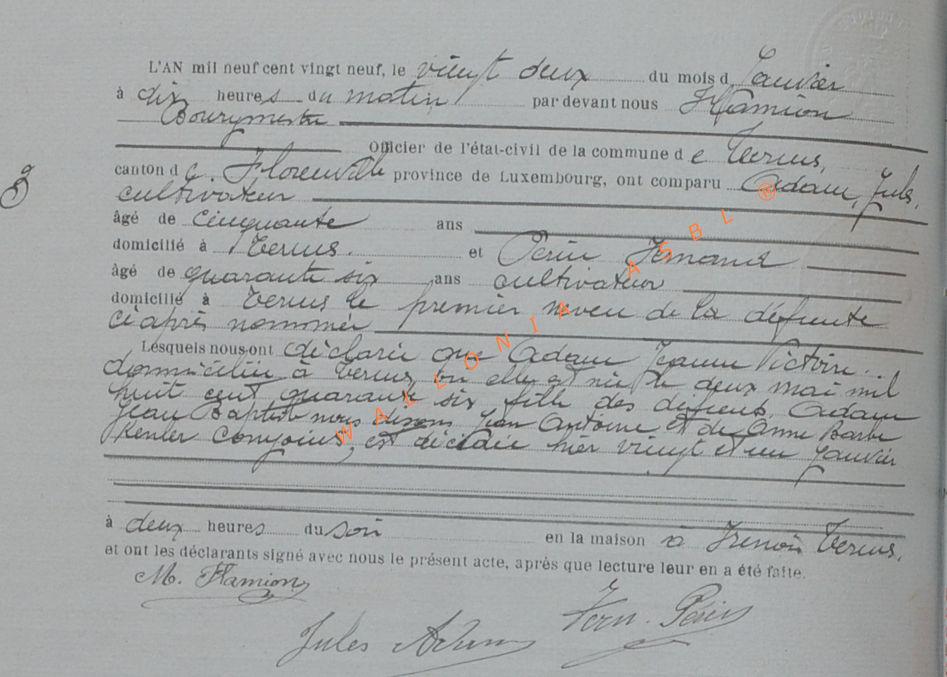 L'AN mil neuf cent vingt neuf, le vingt deux du mois d Janvier
à dix heures du matin par devant nous Hamion
Bourgmestre
Officier de l'état-civil de la commune d e Termes,
canton d e Florenville province de Luxembourg, ont comparu Adam, Jules,
9
cultivateur
âgé de cinquante ans
domicilié à Termes et Perin Fernand
âgé de quarante six ans cultivateur
domicilié à Termes le premier neveu de la défunte
ci après nommée
Lesquels nous ont déclaré que Adam Jeanne Victoire
domiciliée à Termes, où elle est née le deux mai mil
huit cent quarante six fille des défunts Adam
Jean Baptiste nous disons Jean Antoine et de Anne Barbe
conjoints, est décédée hier vingt et un Janvier
à deux heures du soir en la maison à Termes.
et ont les déclarants signé avec nous le présent acte, après que lecture leur en a été faite.
M. Hamion
Jules Adam Fern. Périn
WALLONIA ASBL ®